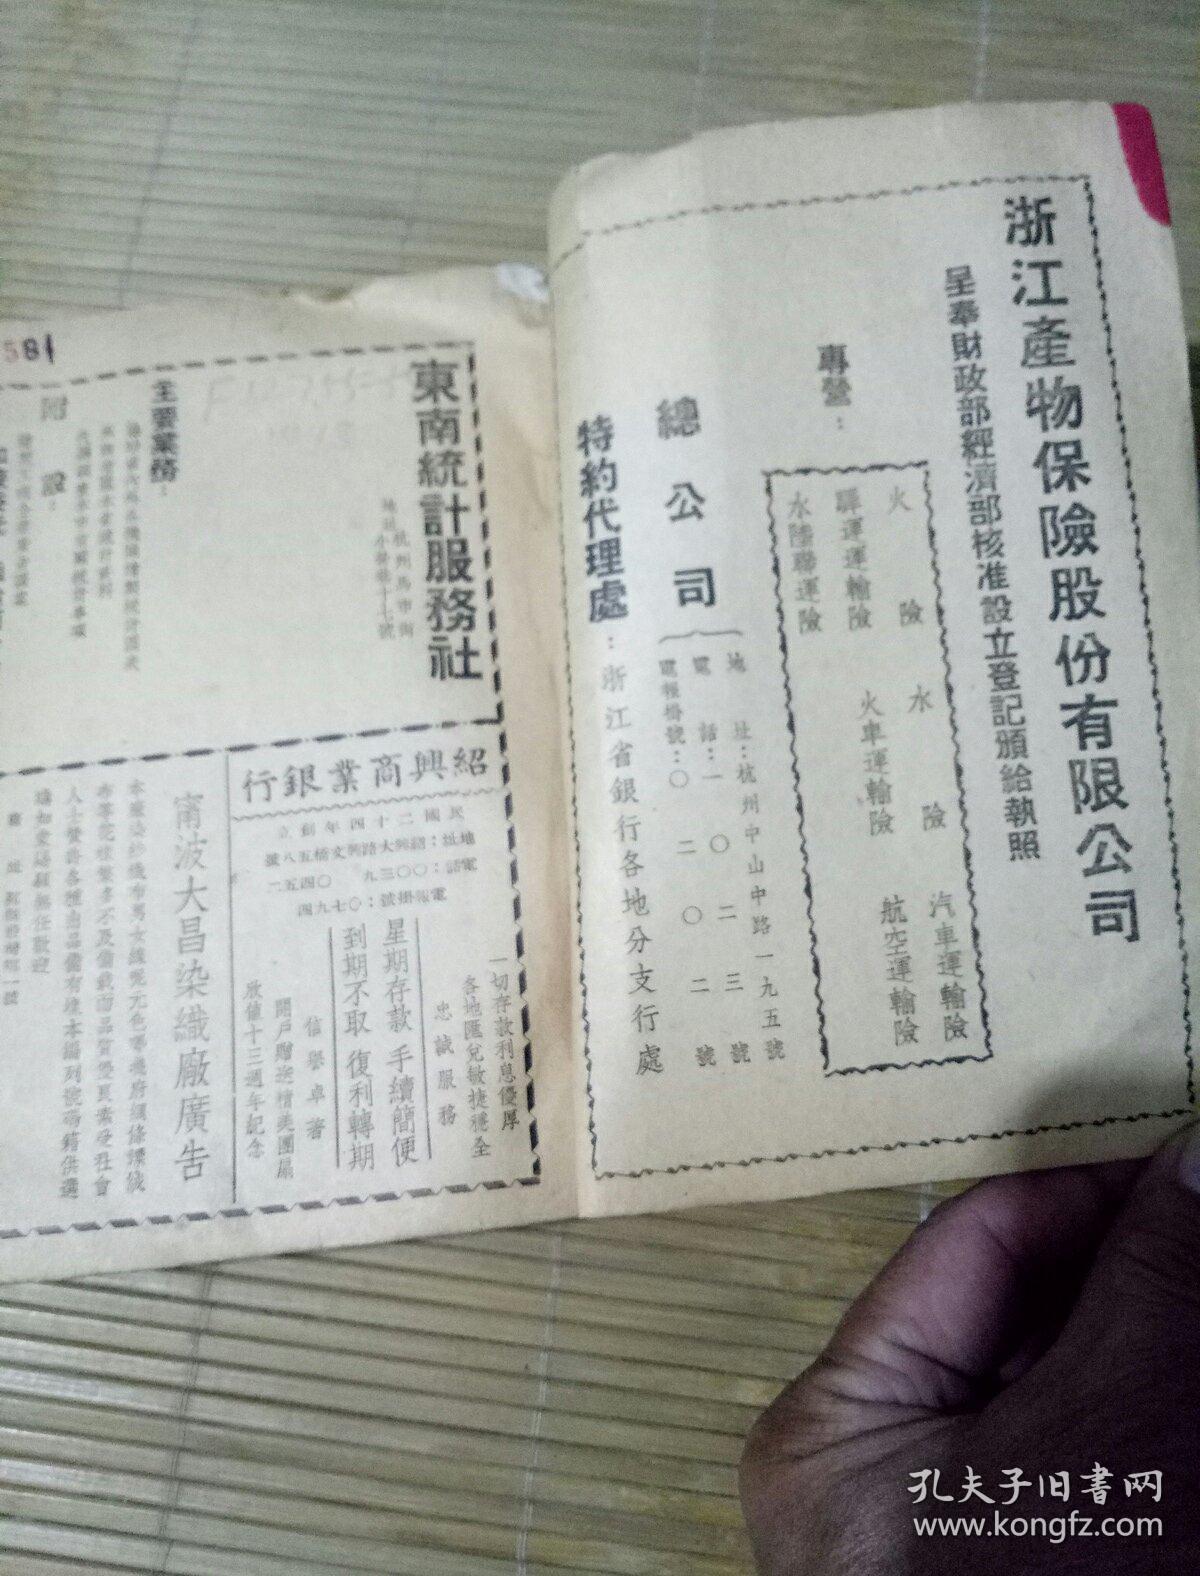 浙江產物保險股份有限公司
呈奉財政部經濟部核准設立登記頒給執照
專營：
火險 水險 汽車運輸險
驛運運輸險 火車運輸險 航空運輸險
水陸聯運險
總公司
地址：杭州中山中路一九五號
電話：一〇二三號
電報掛號：〇二〇二號
特約代理處：浙江省銀行各地分支行處
581
東南統計服務社
地址杭州馬市街
小營巷十七號
主要業務：
附設：
紹興商業銀行
民國二十四年創立
地址：紹興大路興文橋五八號
電話：〇〇三九 〇四五二
電報掛號：〇七九四
一切存款利息優厚
各地匯兌敏捷穩全
忠誠服務
星期存款 手續簡便
到期不取 復利轉期
信譽卓著
開戶贈送精美團扇
欣值十三週年紀念
甯波大昌染織廠廣告
孔夫子旧书网
www.kongfz.com